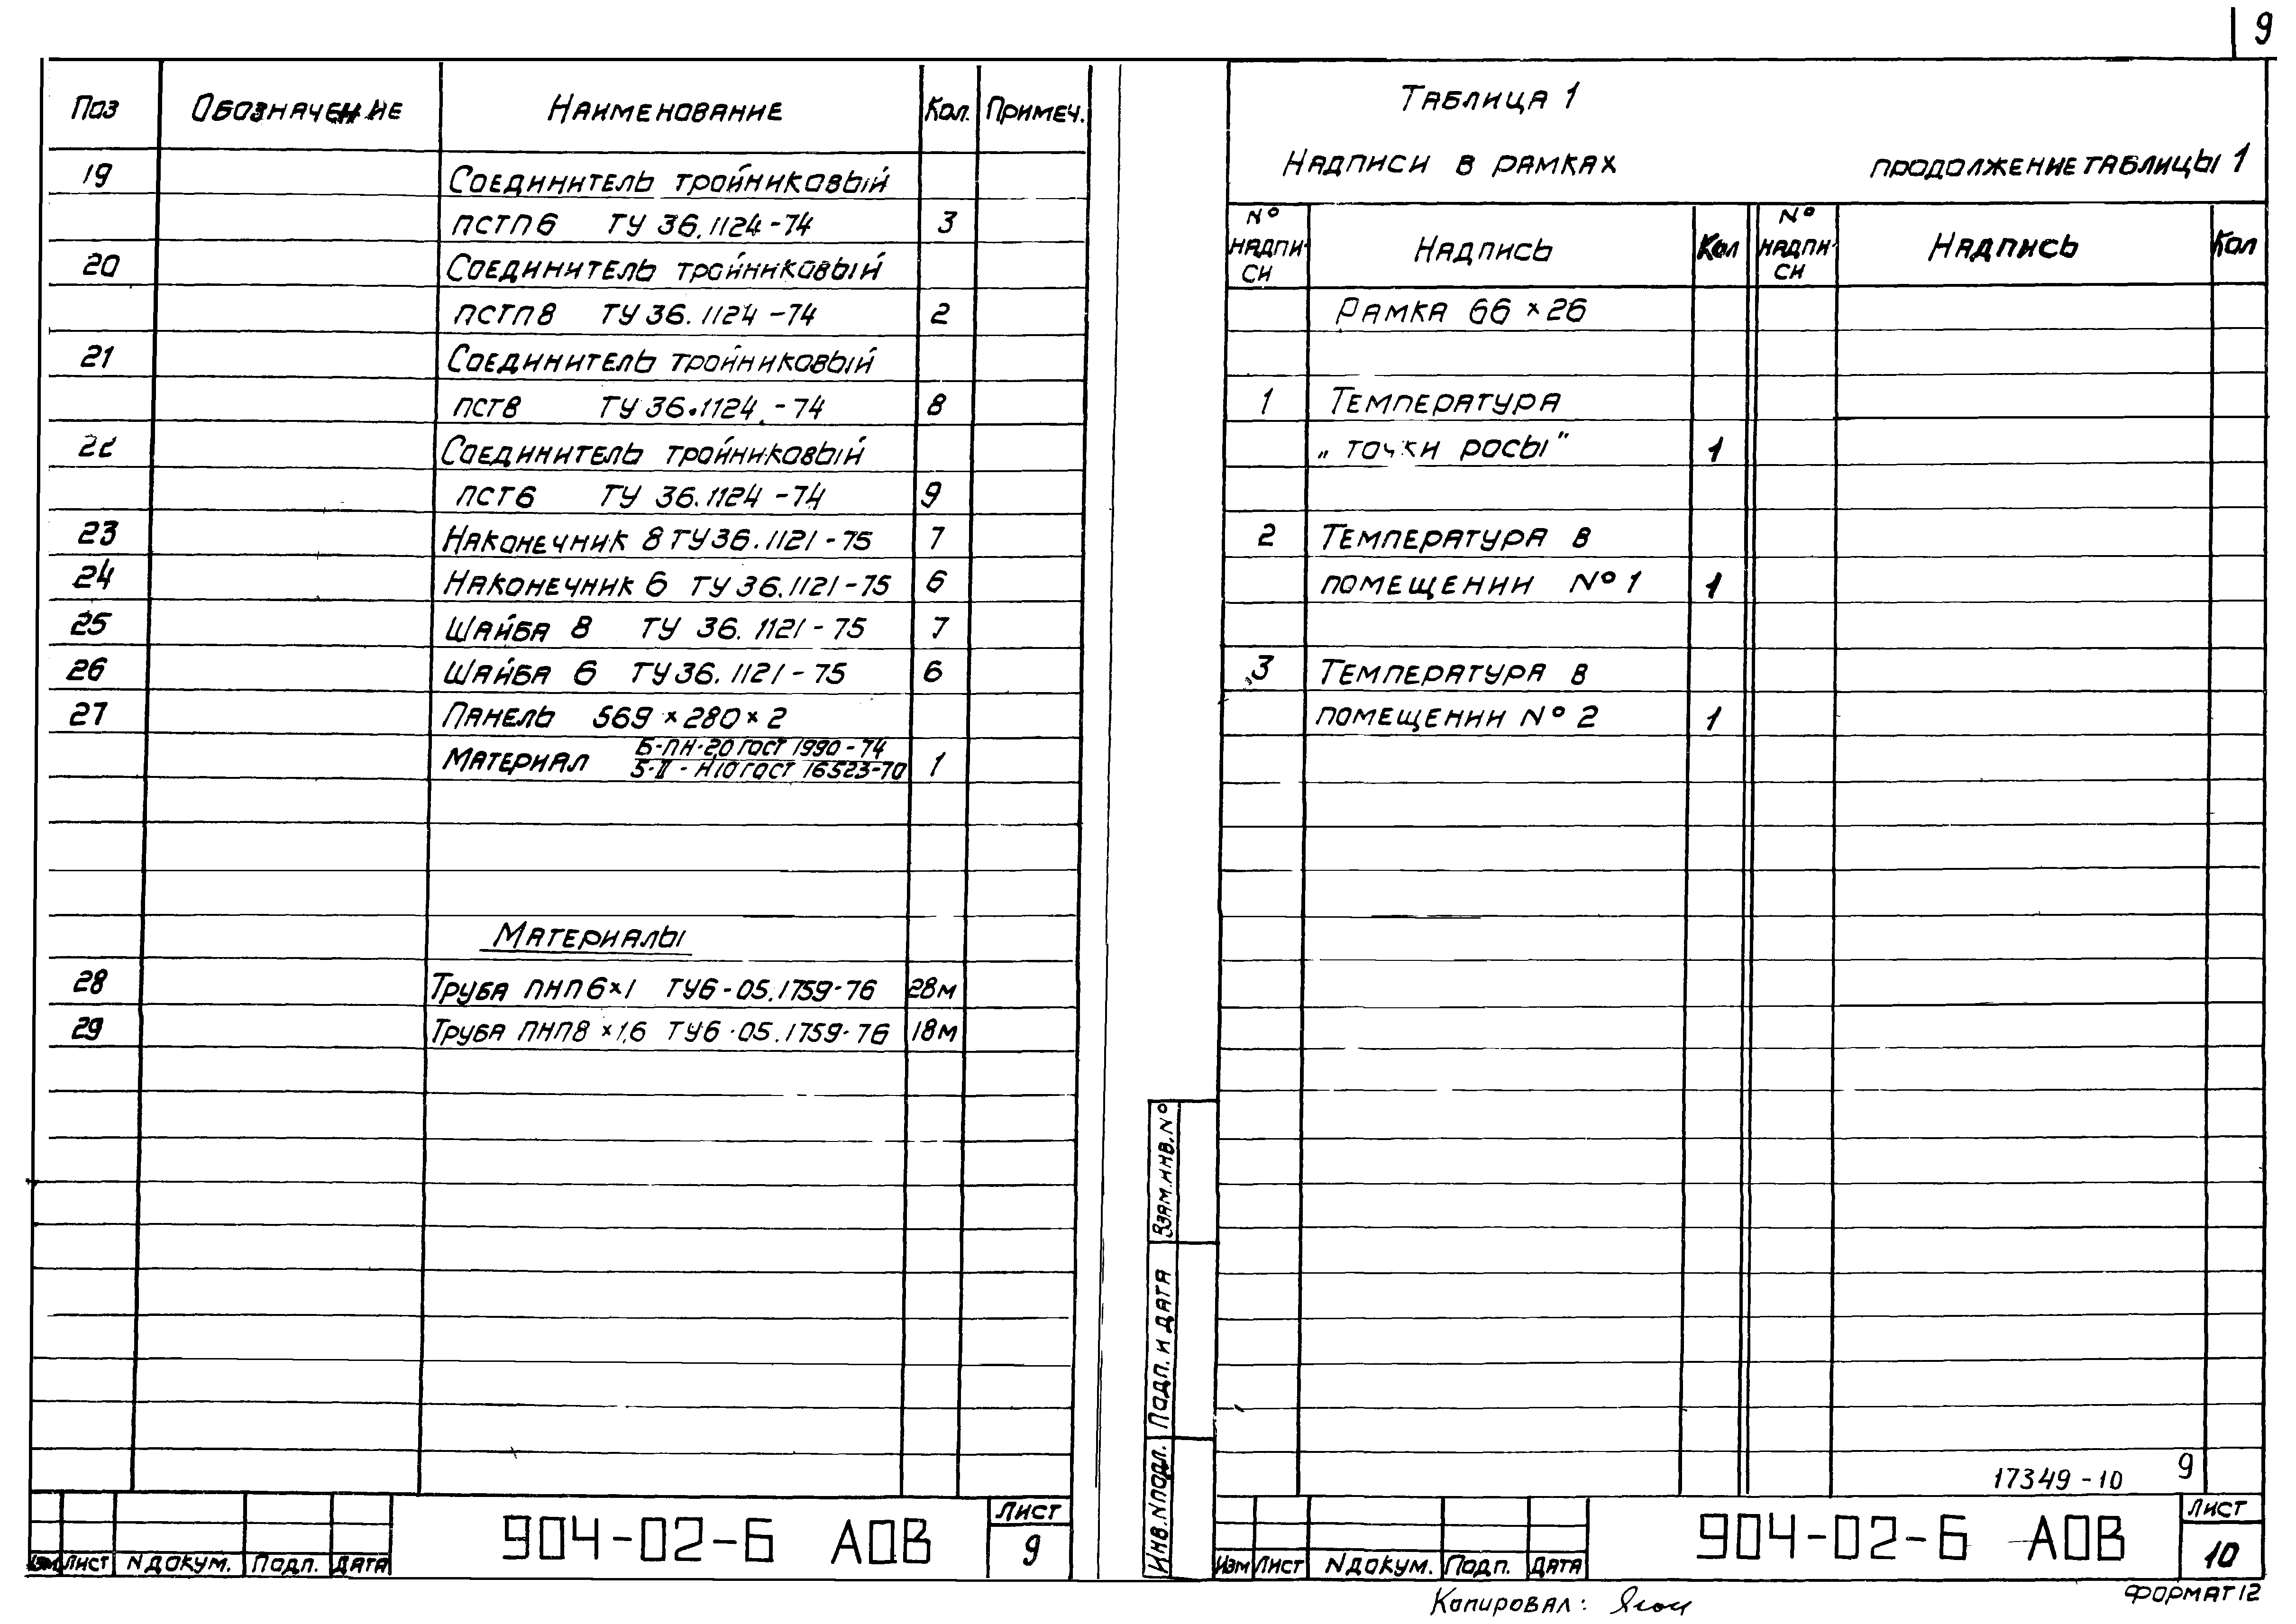 9
Поз Обозначение Наименование Кол. Примеч.
19 Соединитель тройниковый
пстп6 ТУ 36.1124-74 3
20 Соединитель тройниковый
пстп8 ТУ 36.1124-74 2
21 Соединитель тройниковый
пст8 ТУ 36.1124-74 8
22 Соединитель тройниковый
пст6 ТУ 36.1124-74 9
23 Наконечник 8 ТУ36.1121-75 7
24 Наконечник 6 ТУ 36.1121-75 6
25 Шайба 8 ТУ 36.1121-75 7
26 Шайба 6 ТУ36.1121-75 6
27 Панель 569×280×2
Б-ПН-2,0 ГОСТ 1990-74
Материал 5-II-Н10 ГОСТ 16523-70 1
Материалы
28 Труба ПНП6×1 ТУ6-05.1759-76 28м
29 Труба ПНП8×1,6 ТУ6-05.1759-76 18м
Изм Лист N докум. Подп. Дата
904-02-6 АОВ
Лист
9
Таблица 1
Надписи в рамках
продолжение таблицы 1
N° надпи- си Надпись Кол N° надпи- си Надпись Кол
Рамка 66×26
1 Температура
„точки росы" 1
2 Температура в
помещении N° 1 1
3 Температура в
помещении N° 2 1
Взам.инв.N°
Подп. и дата
Инв.N подл.
17349-10 9
Изм Лист N докум. Подп. Дата
904-02-6 АОВ
Лист
10
Копировал:
Формат 12